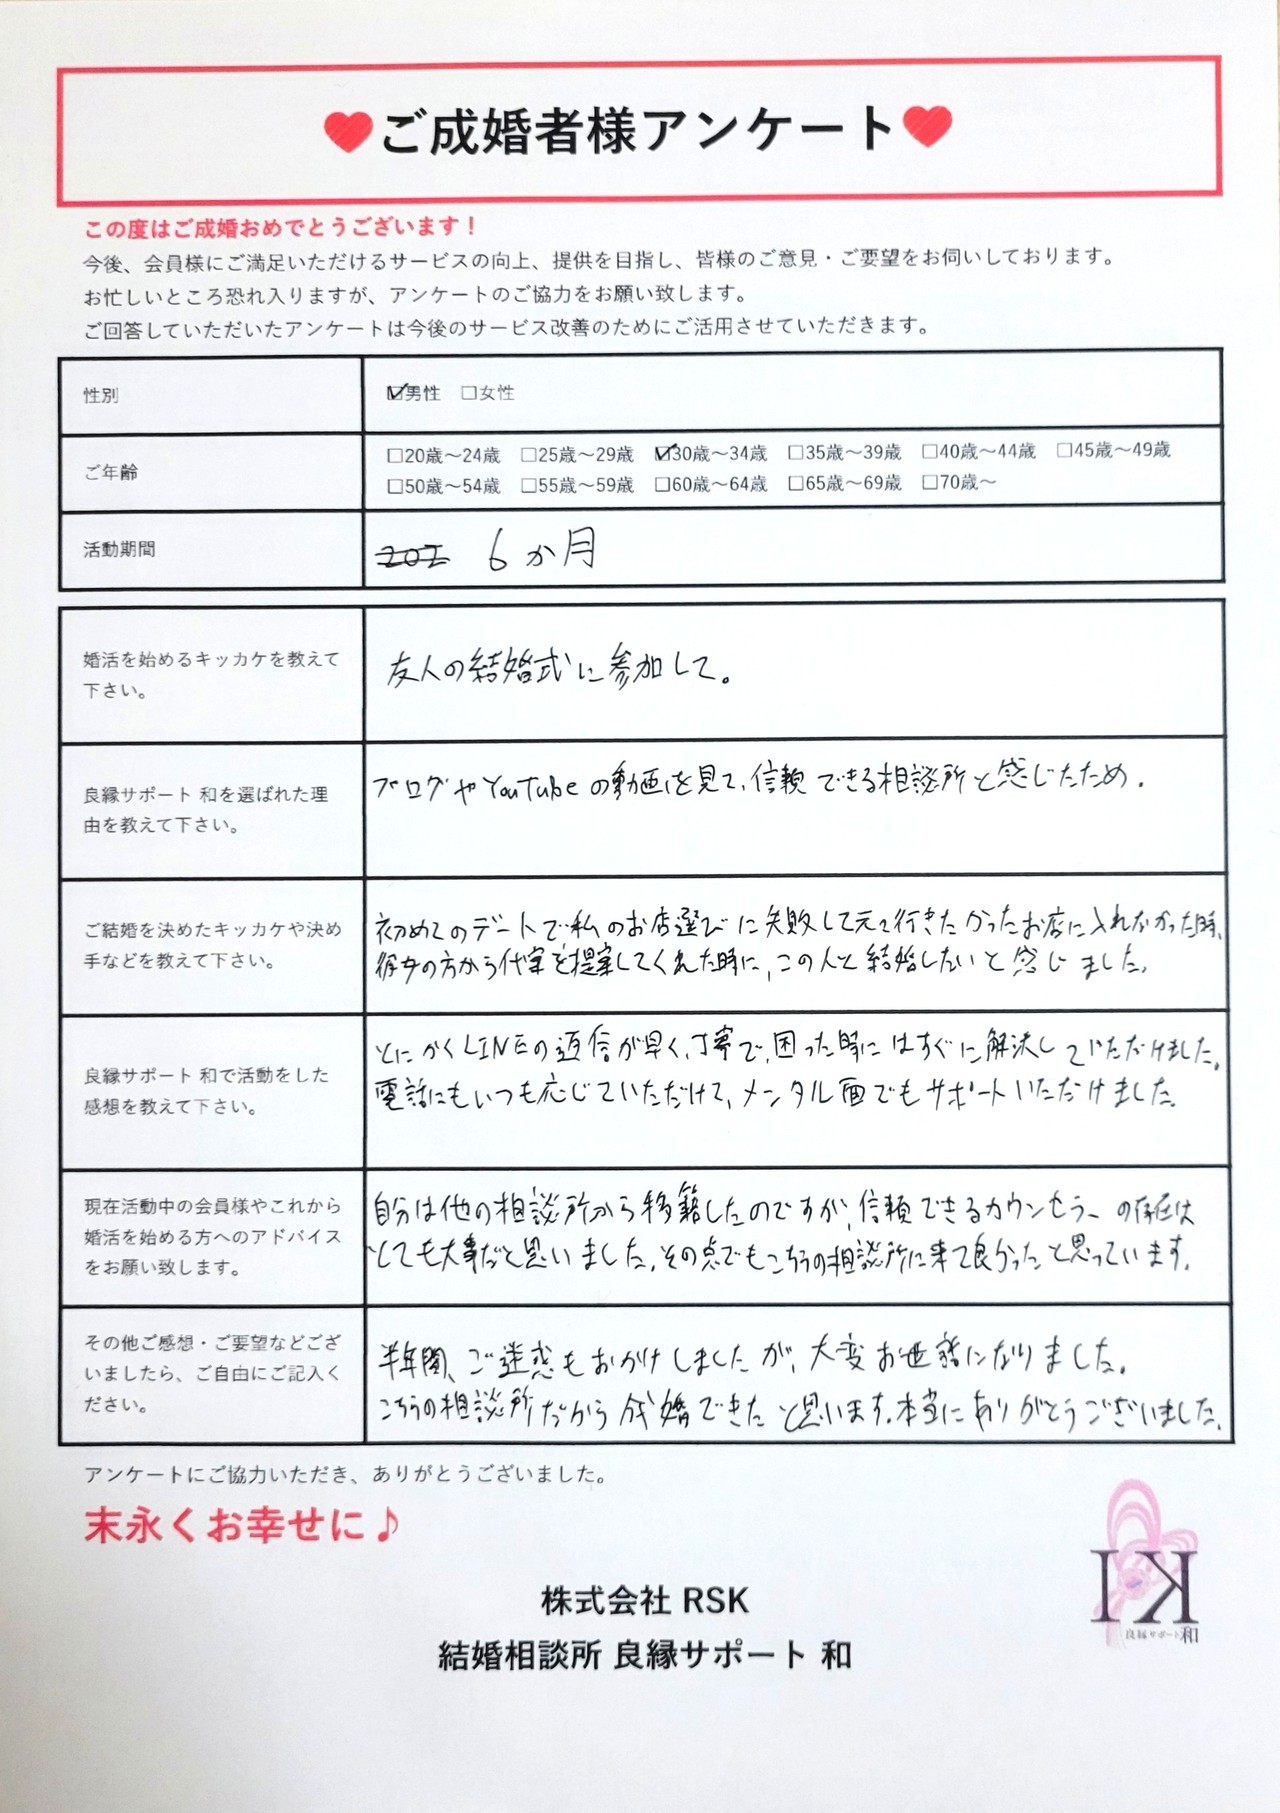 ❤ご成婚者様アンケート❤
この度はご成婚おめでとうございます！
今後、会員様にご満足いただけるサービスの向上、提供を目指し、皆様のご意見・ご要望をお伺いしております。
お忙しいところ恐れ入りますが、アンケートのご協力をお願い致します。
ご回答していただいたアンケートは今後のサービス改善のためにご活用させていただきます。
性別
☑男性 □女性
ご年齢
□20歳～24歳 □25歳～29歳 ☑30歳～34歳 □35歳～39歳 □40歳～44歳 □45歳～49歳
□50歳～54歳 □55歳～59歳 □60歳～64歳 □65歳～69歳 □70歳～
活動期間
6か月
婚活を始めるキッカケを教えて
下さい。
友人の結婚式に参加して。
良縁サポート 和を選ばれた理
由を教えて下さい。
ブログやYouTubeの動画を見て、信頼できる相談所と感じたため。
ご結婚を決めたキッカケや決め
手などを教えて下さい。
初めてのデートで私のお店選びに失敗して元々行きたかったお店に入れなかった時、
彼女の方から代案を提案してくれた時に、この人と結婚したいと感じました。
良縁サポート 和で活動をした
感想を教えて下さい。
とにかくLINEの返信が早く、丁寧で、困った時にはすぐに解決していただけました。
電話にもいつも応じていただけて、メンタル面でもサポートいただけました。
現在活動中の会員様やこれから
婚活を始める方へのアドバイス
をお願い致します。
自分は他の相談所から移籍したのですが、信頼できるカウンセラーの存在は
とても大事だと思いました。その点でもこちらの相談所に来て良かったと思っています。
その他ご感想・ご要望などござ
いましたら、ご自由にご記入く
ださい。
半年間、ご迷惑もおかけしましたが、大変お世話になりました。
こちらの相談所だから成婚できたと思います。本当にありがとうございました。
アンケートにご協力いただき、ありがとうございました。
末永くお幸せに♪
株式会社 RSK
結婚相談所 良縁サポート 和
良縁サポート和